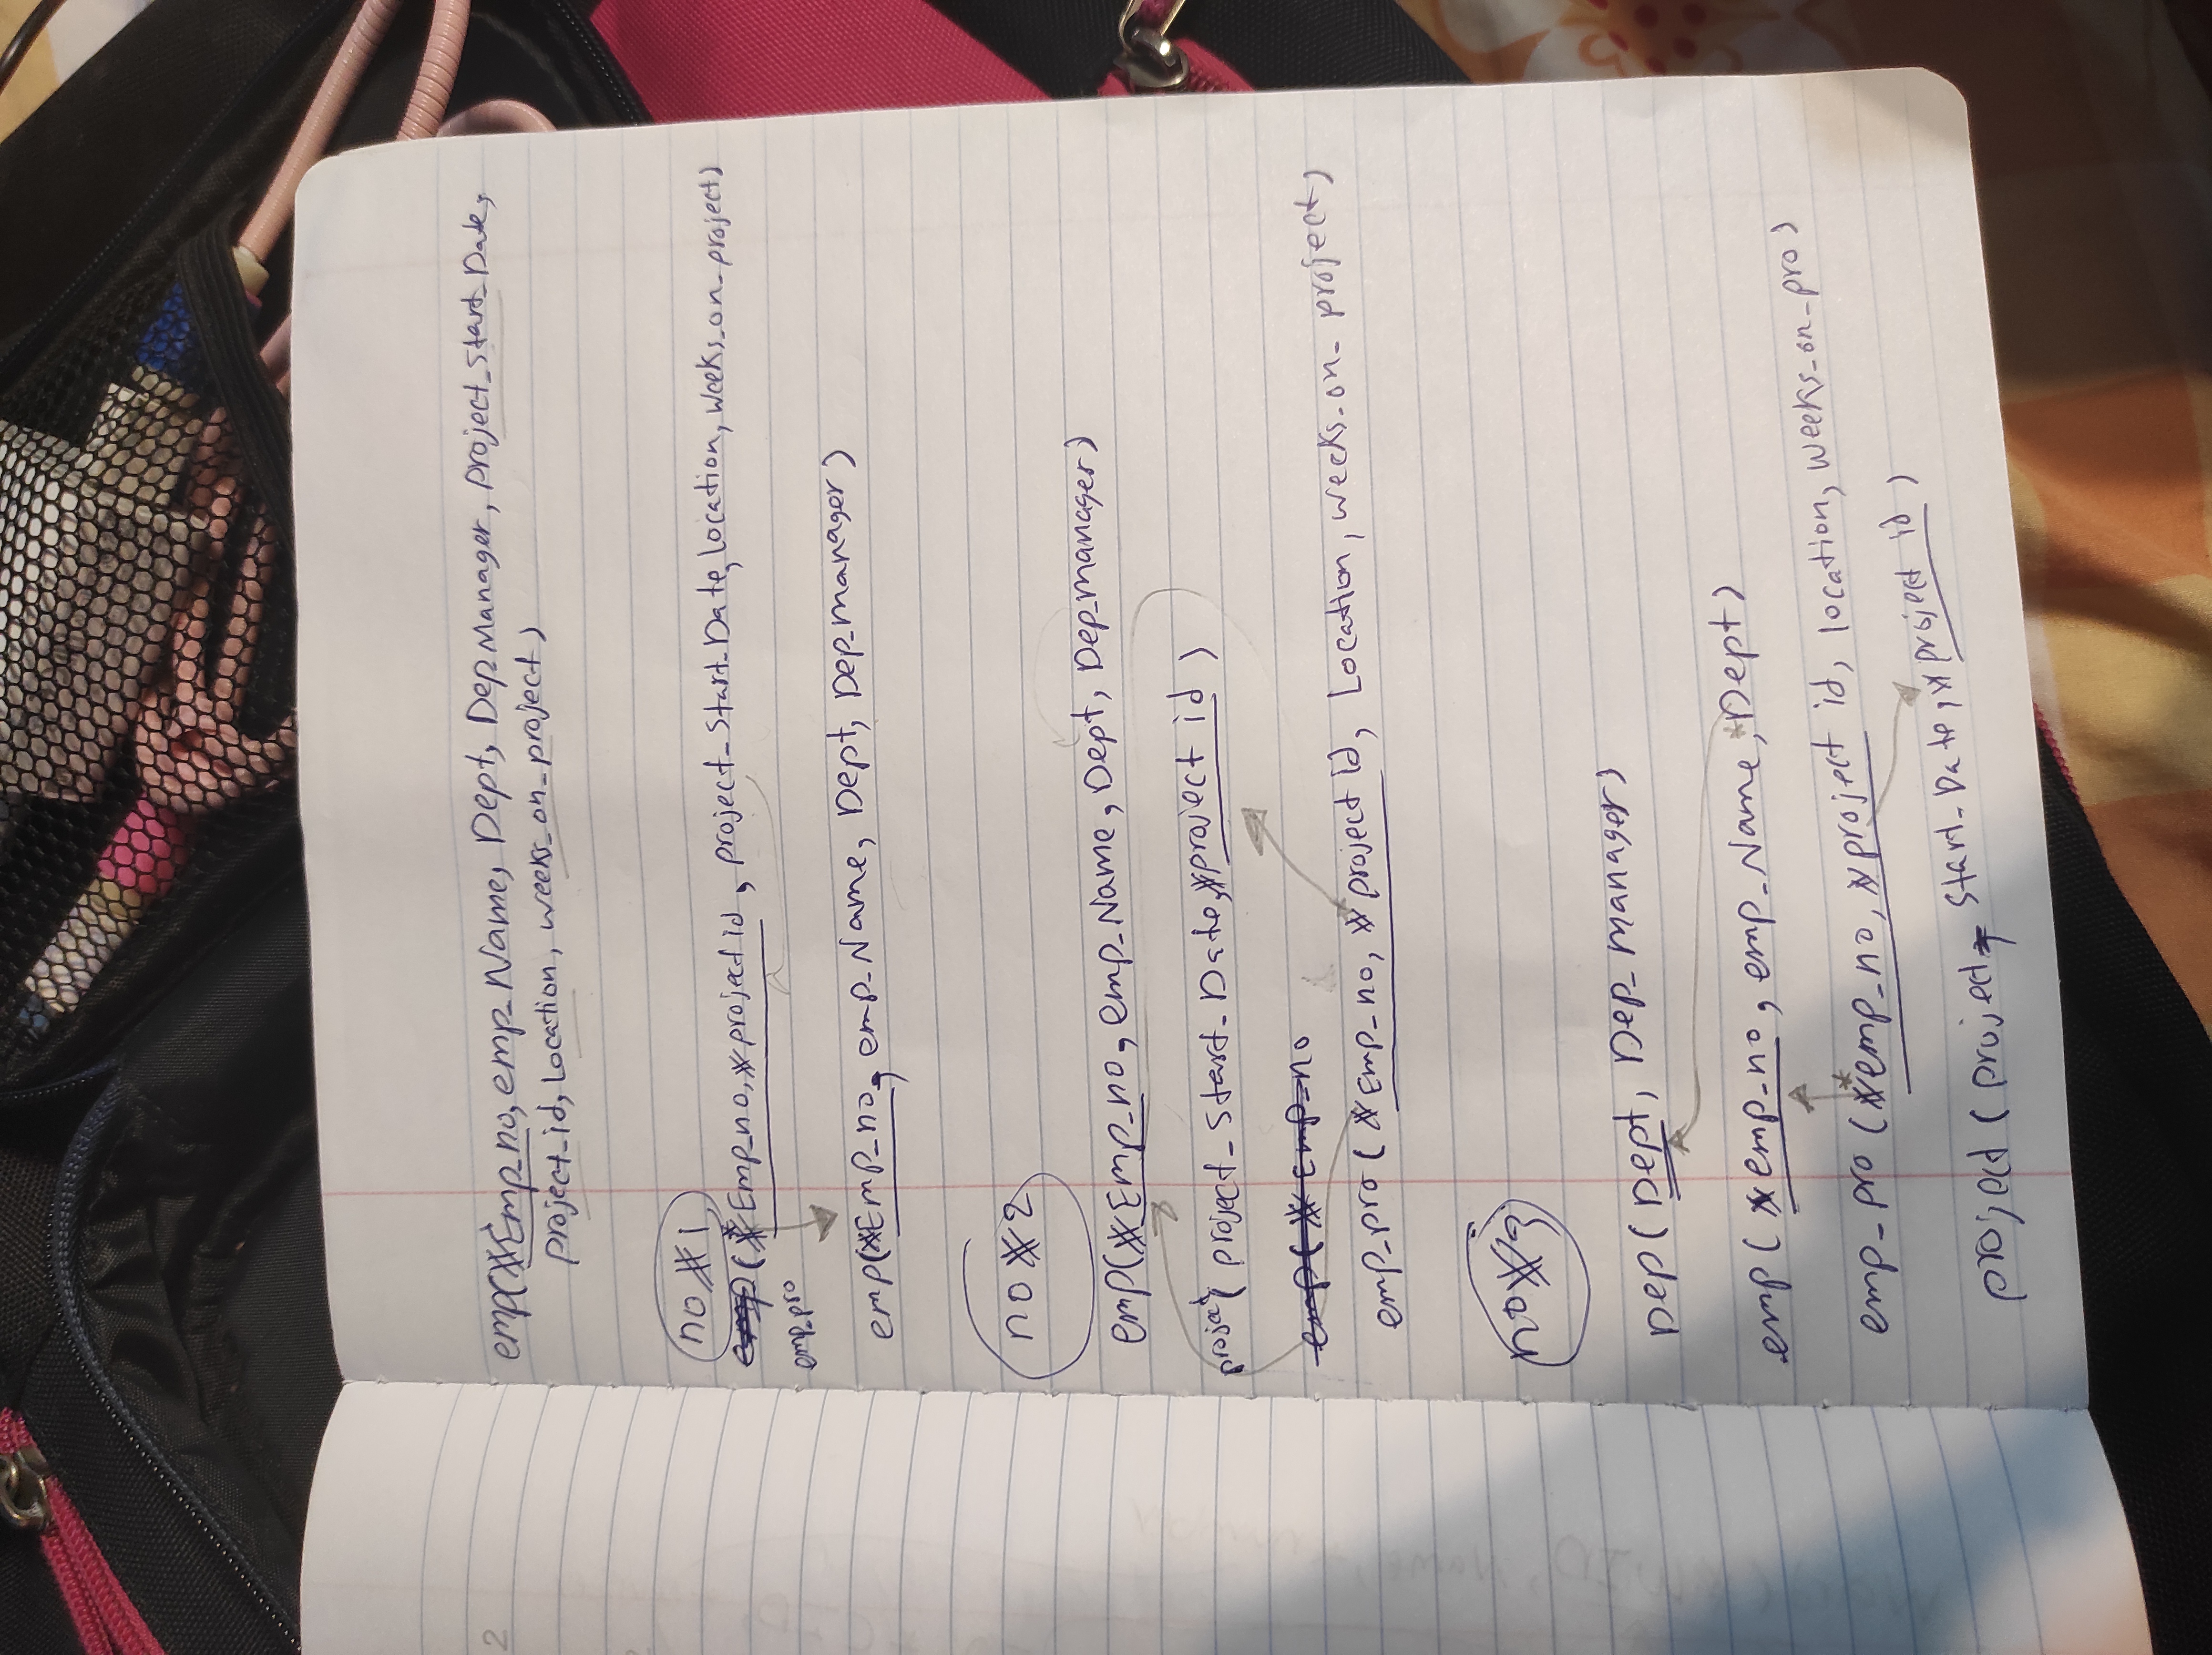 emp(#Emp_no, emp_Name, Dept, Dep_Manager, project_Start_Date,
project_id, Location, weeks_on_project)
no #1
emp (#Emp_no, #project id, project_Start_Date, location, weeks_on_project)
emp_pro
emp(#Emp_no, emp_Name, Dept, Dep_manager)
no #2
emp(#Emp_no, emp_Name, Dept, Dep_manager)
project( project_Start_Date, #project id )
emp( # Emp_no
emp_pro ( #Emp_no, # project id, Location, weeks_on_ project)
no #3
Dep( Dept, Dep_ manager)
emp ( #emp_no, emp_Name, *Dept)
emp_pro (#*emp_no, #project id, location, weeks_on_pro)
project ( project_ Start_Date, #project id )
2